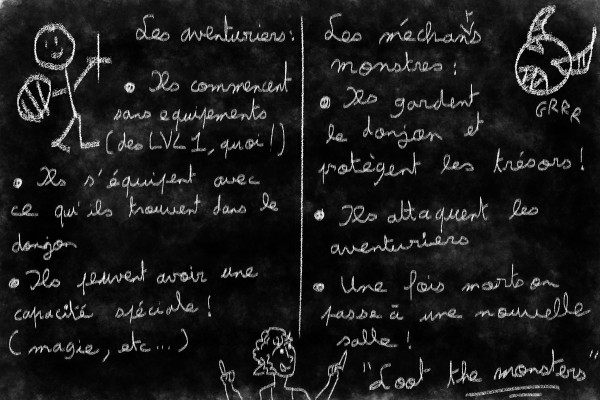 Les aventuriers:
• Ils commencent
sans equipements
(des LVL 1, quoi!)
• Ils s'équipent avec
ce qu'ils trouvent dans le
donjon
• Ils peuvent avoir une
capacité spéciale!
(magie, etc...)
Les méchants
monstres:
• Ils gardent
le donjon et
protègent les trésors!
• Ils attaquent les
aventuriers
• Une fois morts on
passe à une nouvelle
salle!
GRRR
"Loot the monsters"